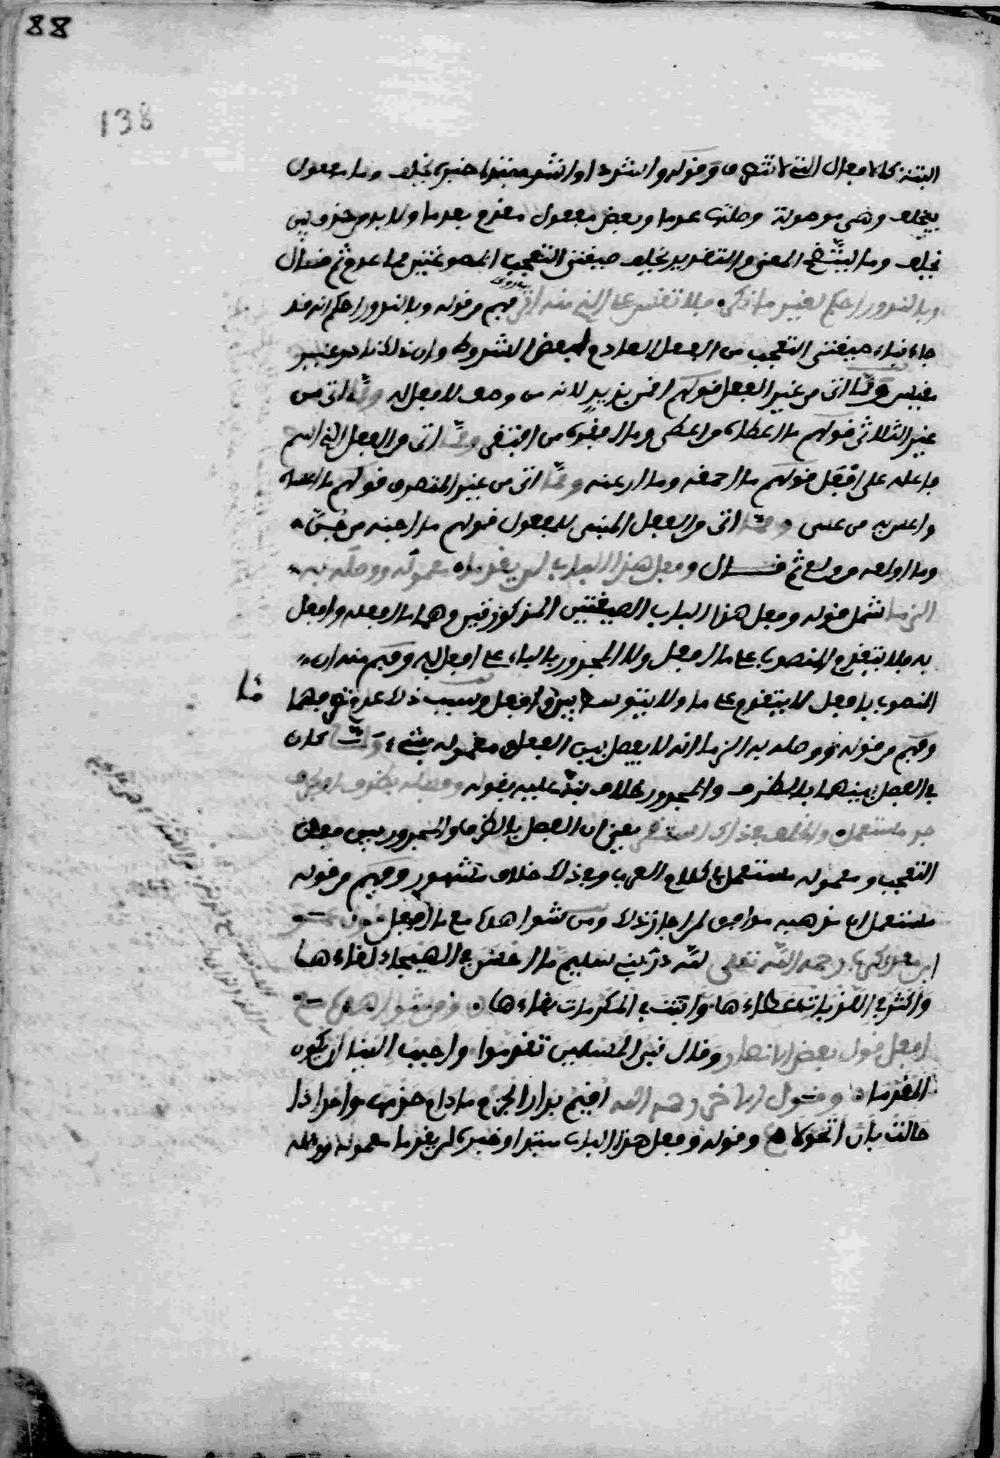 88
138
البتة كالافعال التي لا تتصرف وقوله واشدد او اشد مبتدا خبره يخلف وما مفعول
بيخلف وهي موصولة وصلتها عدما وبعض مفعول مقدم بعدما ولا بد من حذف بين
يخلف وما ليتضح المعنى والتقدير يخلف صيغتي التعجب المصوغتين مما عدم ثم قال
وبالندور احكم لغير ما ذكر ولا تقس على الذي منه اثر فهم من قوله وبالندور احكم انه قد
جاء بناء صيغتي التعجب من الفعل العادم لبعض الشروط وان ذلك نادر غير
مقيس فمما اتى من غير الفعل قولهم اقمن بزيد لانه من وصف لا فعل له ومما اتى من
غير الثلاثي قولهم ما اعطاه من اعطى وما افقره من افتقر ومما اتى من الفعل الذي اسم
فاعله على افعل قولهم ما احمقه وما ارعنه ومما اتى من غير المتصرف قولهم ما اعساه
واعس به من عسى ومما اتى من الفعل المبني للمفعول قولهم ما اجنه من جن
وما اولعه من ولع ثم قال وفعل هذا الباب لن يقدما معموله ووصله به
الزما شمل قوله وفعل هذا الباب الصيغتين المذكورتين وهما ما افعله وافعل
به فلا يتقدم المنصوب على ما افعل ولا المجرور بالباء على افعل به وفهم منه ان
المنصوب بافعل لا يتقدم على ما ولا يتوسط بين ما وافعل وسبب ذلك عدم تصرفهما
وفهم من قوله ووصله به الزما انه لا يفصل بين الفعل ومعموله بشيء ولما كان
في الفصل بينهما بالظرف والمجرور خلاف نبه عليه بقوله وفصله بظرف او بحرف
جر مستعمل والخلف في ذاك استقر يعني ان الفصل بالظرف والمجرور بين فعل
التعجب ومعموله مستعمل في كلام العرب وفي ذلك خلاف مشهور وفهم من قوله
مستعمل ان مذهبه موافق لمن اجاز ذلك ومن شواهده مع ما افعل قول عمرو
ابن معدي كرب رحمه الله تعالى لله در بني سليم ما احسن في الهيجاء لقاءها
واكثر في اللزبات عطاءها واثبت في المكرمات بقاءها ومن شواهده مع
افعل قول بعض الانصار وقال نبي المسلمين تقدموا واحبب الينا ان يكون
المقدما وقول اخر رحمه الله اقيم بدار الحزم ما دام حزمها واحر اذا
حالت بان اتحولا وقوله وفعل هذا الباب مبتدا وخبره لن يقدما معموله ووصله